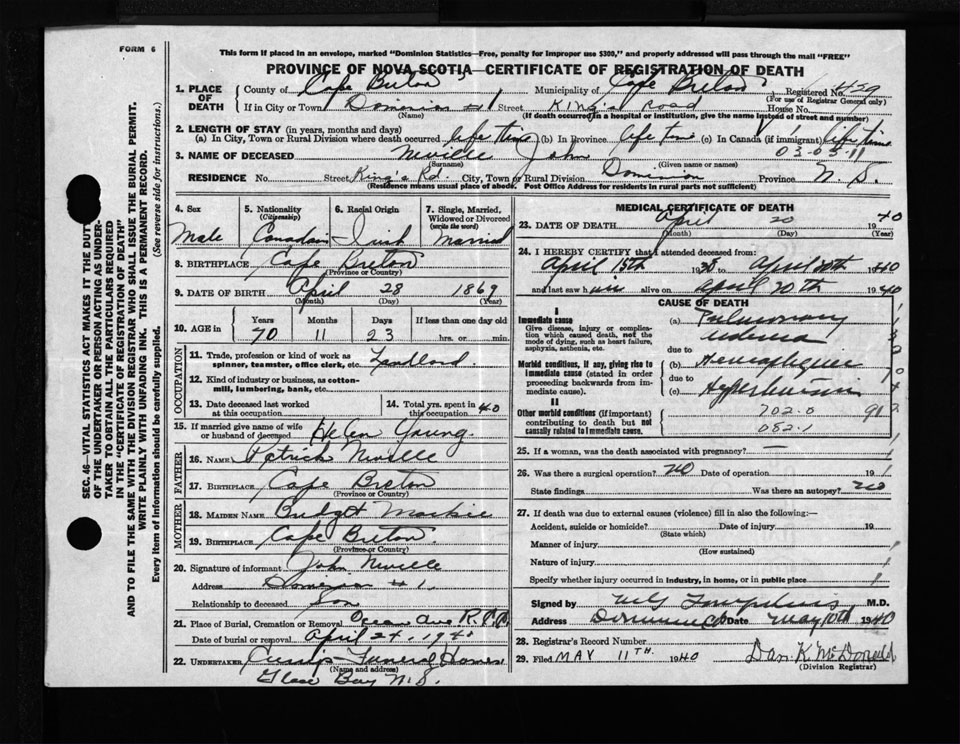 FORM 6
This form if placed in an envelope, marked "Dominion Statistics—Free, penalty for improper use $300," and properly addressed will pass through the mail "FREE"
PROVINCE OF NOVA SCOTIA—CERTIFICATE OF REGISTRATION OF DEATH
1. PLACE OF DEATH County of Cape Breton Municipality of Cape Breton Registered No. 429
(For use of Registrar General only)
If in City or Town Dominion #1 Street King's Road House No.
(Name) (If death occurred in a hospital or institution, give the name instead of street and number)
2. LENGTH OF STAY (in years, months and days)
(a) In City, Town or Rural Division where death occurred life time (b) In Province life time (c) In Canada (if immigrant) life time
03-05-11
3. NAME OF DECEASED Neville John
(Surname) (Given name or names)
RESIDENCE No. Street King's Rd. City, Town or Rural Division Dominion Province N. S.
(Residence means usual place of abode. Post Office Address for residents in rural parts not sufficient)
4. Sex Male
5. Nationality (Citizenship) Canadain
6. Racial Origin Irish
7. Single, Married, Widowed or Divorced (write the word) Married
8. BIRTHPLACE Cape Breton
(Province or Country)
9. DATE OF BIRTH April 28 1869
(Month) (Day) (Year)
10. AGE in Years Months Days If less than one day old
70 11 23 hrs. or min.
OCCUPATION
11. Trade, profession or kind of work as spinner, teamster, office clerk, etc. Landlord
12. Kind of industry or business, as cotton-mill, lumbering, bank, etc.
13. Date deceased last worked at this occupation
14. Total yrs. spent in this occupation 40
15. If married give name of wife or husband of deceased Helen Young
FATHER
16. NAME Patrick Neville
17. BIRTHPLACE Cape Breton
(Province or Country)
MOTHER
18. MAIDEN NAME Bridget Mackie
19. BIRTHPLACE Cape Breton
(Province or Country)
20. Signature of informant John Neville
Address Dominion #1
Relationship to deceased Son
21. Place of Burial, Cremation or Removal Ocean Ave R.C.
Date of burial or removal April 24, 1940
22. UNDERTAKER Funeral Home
(Name and address)
Glace Bay N.S.
MEDICAL CERTIFICATE OF DEATH
23. DATE OF DEATH April 20 1940
(Month) (Day) (Year)
24. I HEREBY CERTIFY that I attended deceased from:
April 15th 19 to April 20th 1940
and last saw him alive on April 20th 1940
CAUSE OF DEATH
I
Immediate cause
Give disease, injury or complication which caused death, not the mode of dying, such as heart failure, asphyxia, asthenia, etc.
(a) Pulmonary
due to
Morbid conditions, if any, giving rise to immediate cause (stated in order proceeding backwards from immediate cause).
(b) Hemaplegia
due to
(c)
II
Other morbid conditions (if important) contributing to death but not causally related to immediate cause.
702.0
082.1
25. If a woman, was the death associated with pregnancy?
26. Was there a surgical operation? no Date of operation 19
State findings Was there an autopsy? no
27. If death was due to external causes (violence) fill in also the following:—
Accident, suicide or homicide? Date of injury 19
(State which)
Manner of injury
(How sustained)
Nature of injury
Specify whether injury occurred in industry, in home, or in public place
Signed by M.D.
Address Dominion CB Date May 10th 1940
28. Registrar's Record Number
29. Filed MAY 11TH. 1940 Dan. K. McDonald
(Division Registrar)
SEC. 46—VITAL STATISTICS ACT MAKES IT THE DUTY OF THE UNDERTAKER OR PERSON ACTING AS UNDERTAKER TO OBTAIN ALL THE PARTICULARS REQUIRED IN THE "CERTIFICATE OF REGISTRATION OF DEATH" AND TO FILE THE SAME WITH THE DIVISION REGISTRAR WHO SHALL ISSUE THE BURIAL PERMIT.
WRITE PLAINLY WITH UNFADING INK. THIS IS A PERMANENT RECORD.
Every item of information should be carefully supplied. (See reverse side for instructions.)